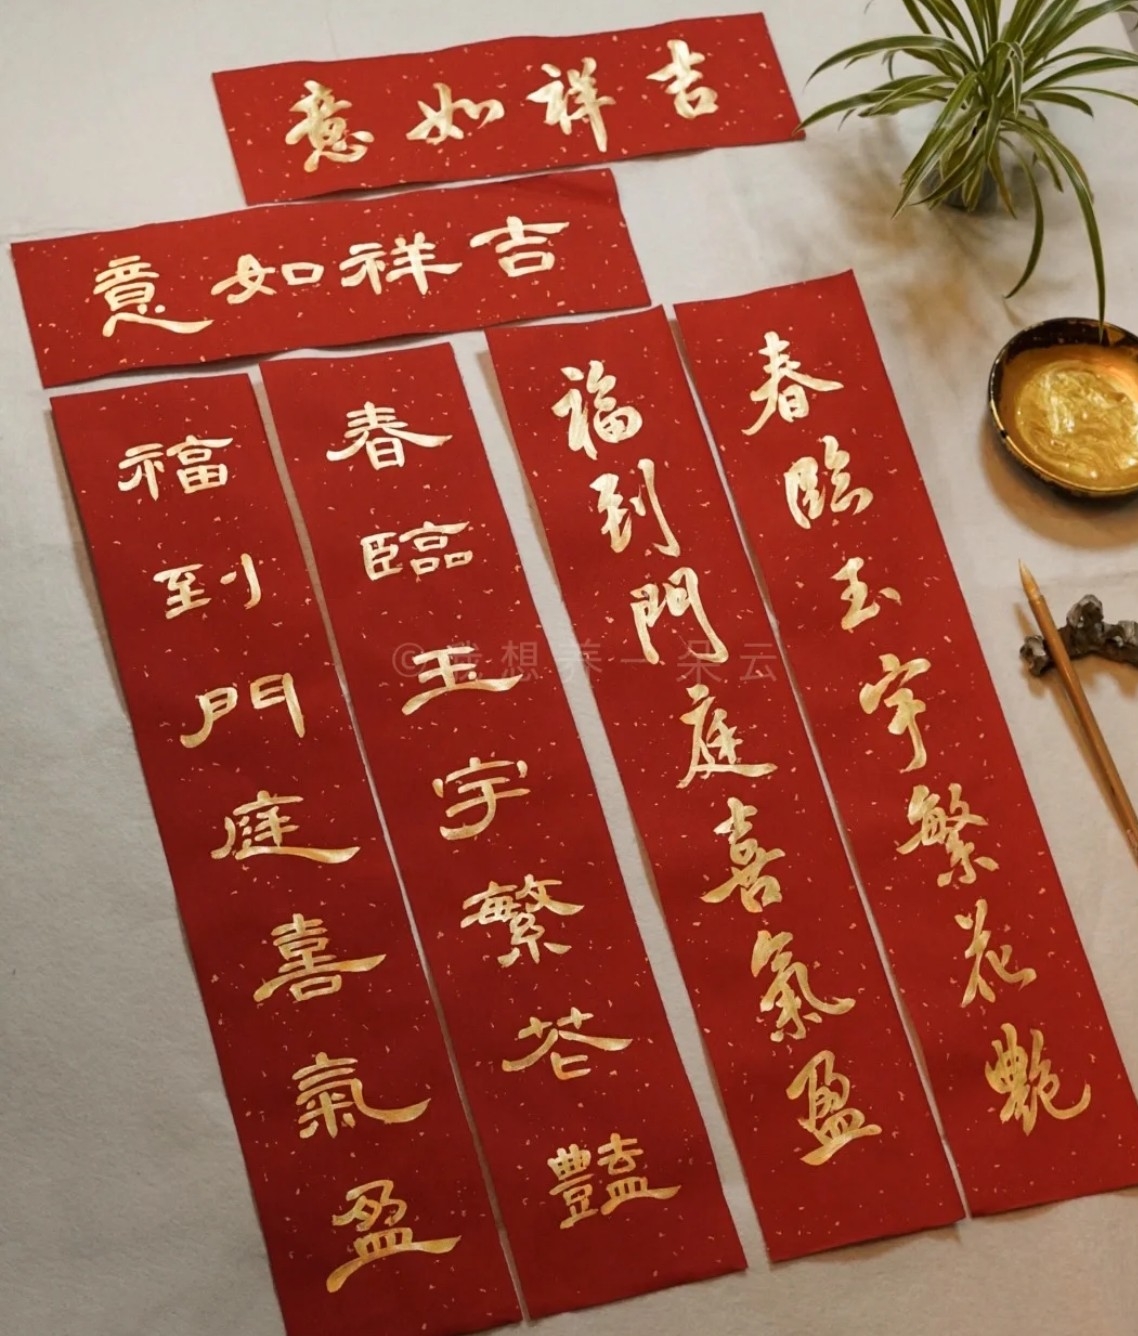 吉祥如意
吉祥如意
春臨玉宇繁花艷
福到門庭喜氣盈
春臨玉宇繁花豔
福到門庭喜氣盈
©我想养一朵云